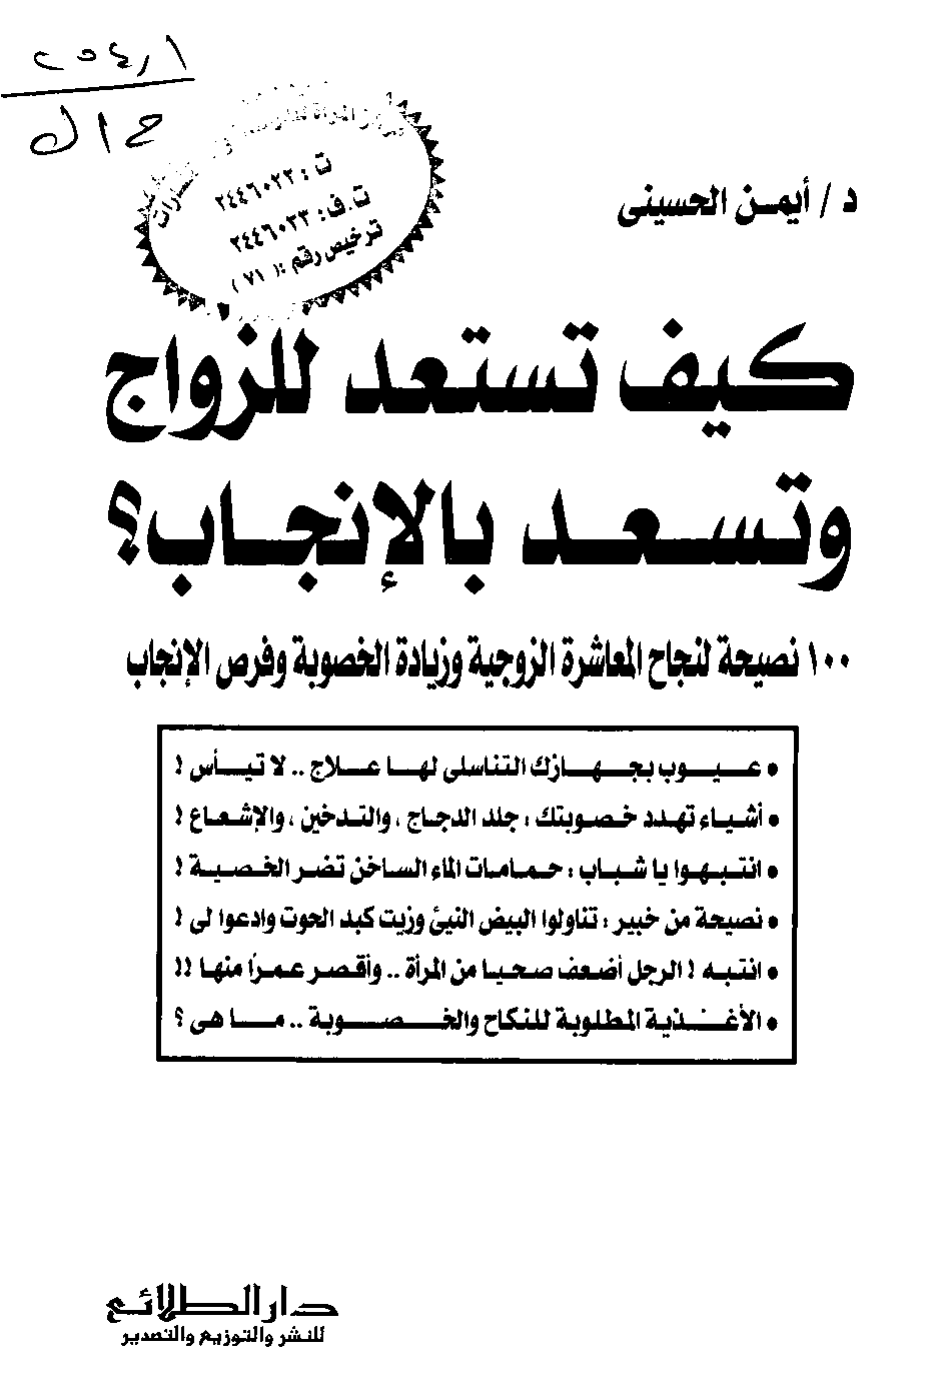 ٢٥٤,١
ح ا ل
ت : ٢٤٤٦٠٢٢
ت.ف: ٢٤٤٦٠٣٣
ترخيص رقم : ( ٧١ )
د / أيمن الحسينى
كيف تستعد للزواج
وتسعد بالإنجاب؟
١٠٠ نصيحة لنجاح المعاشرة الزوجية وزيادة الخصوبة وفرص الإنجاب
• عيوب بجهازك التناسلى لها علاج .. لا تيأس !
• أشياء تهدد خصوبتك : جلد الدجاج ، والتدخين ، والإشعاع !
• انتبهوا يا شباب : حمامات الماء الساخن تضر الخصية !
• نصيحة من خبير : تناولوا البيض النيئ وزيت كبد الحوت وادعوا لى !
• انتبه ! الرجل أضعف صحيا من المرأة .. وأقصر عمراً منها !!
• الأغذية المطلوبة للنكاح والخصوبة .. ما هى ؟
دار الطلائع
للنشر والتوزيع والتصدير